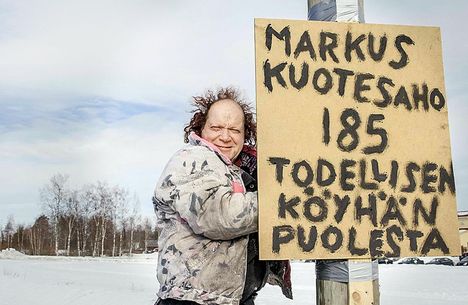 MARKUS
KUOTESAHO
185
TODELLISEN
KÖYHÄN
PUOLESTA